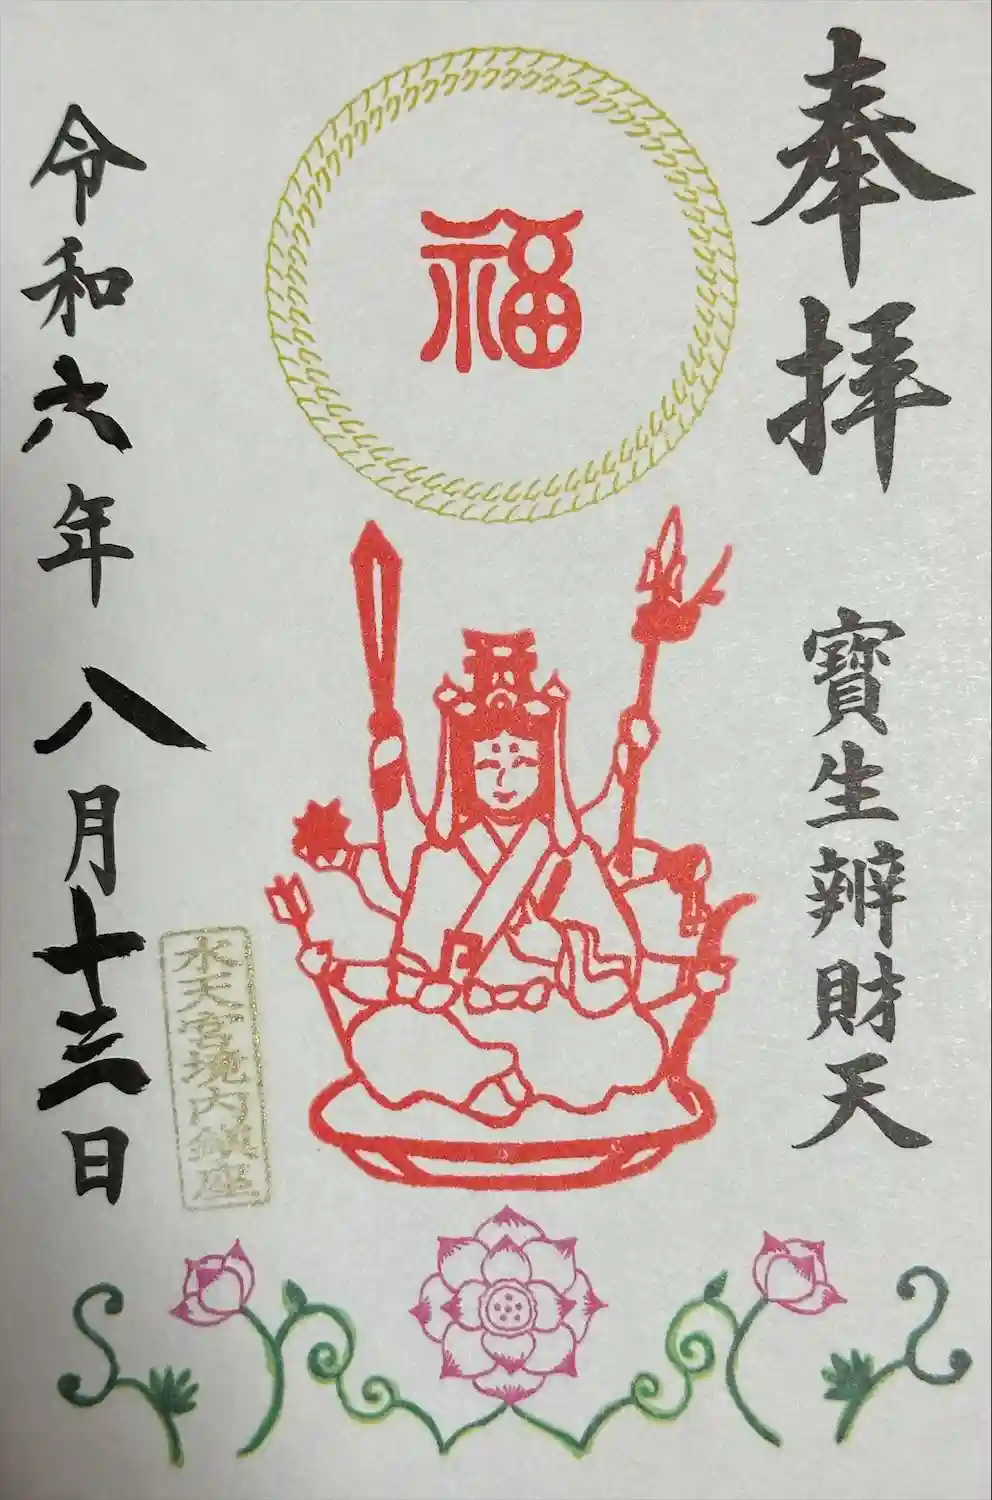 奉拝
寶生辨財天
福
令和六年八月十三日
水天宮境内鎮座